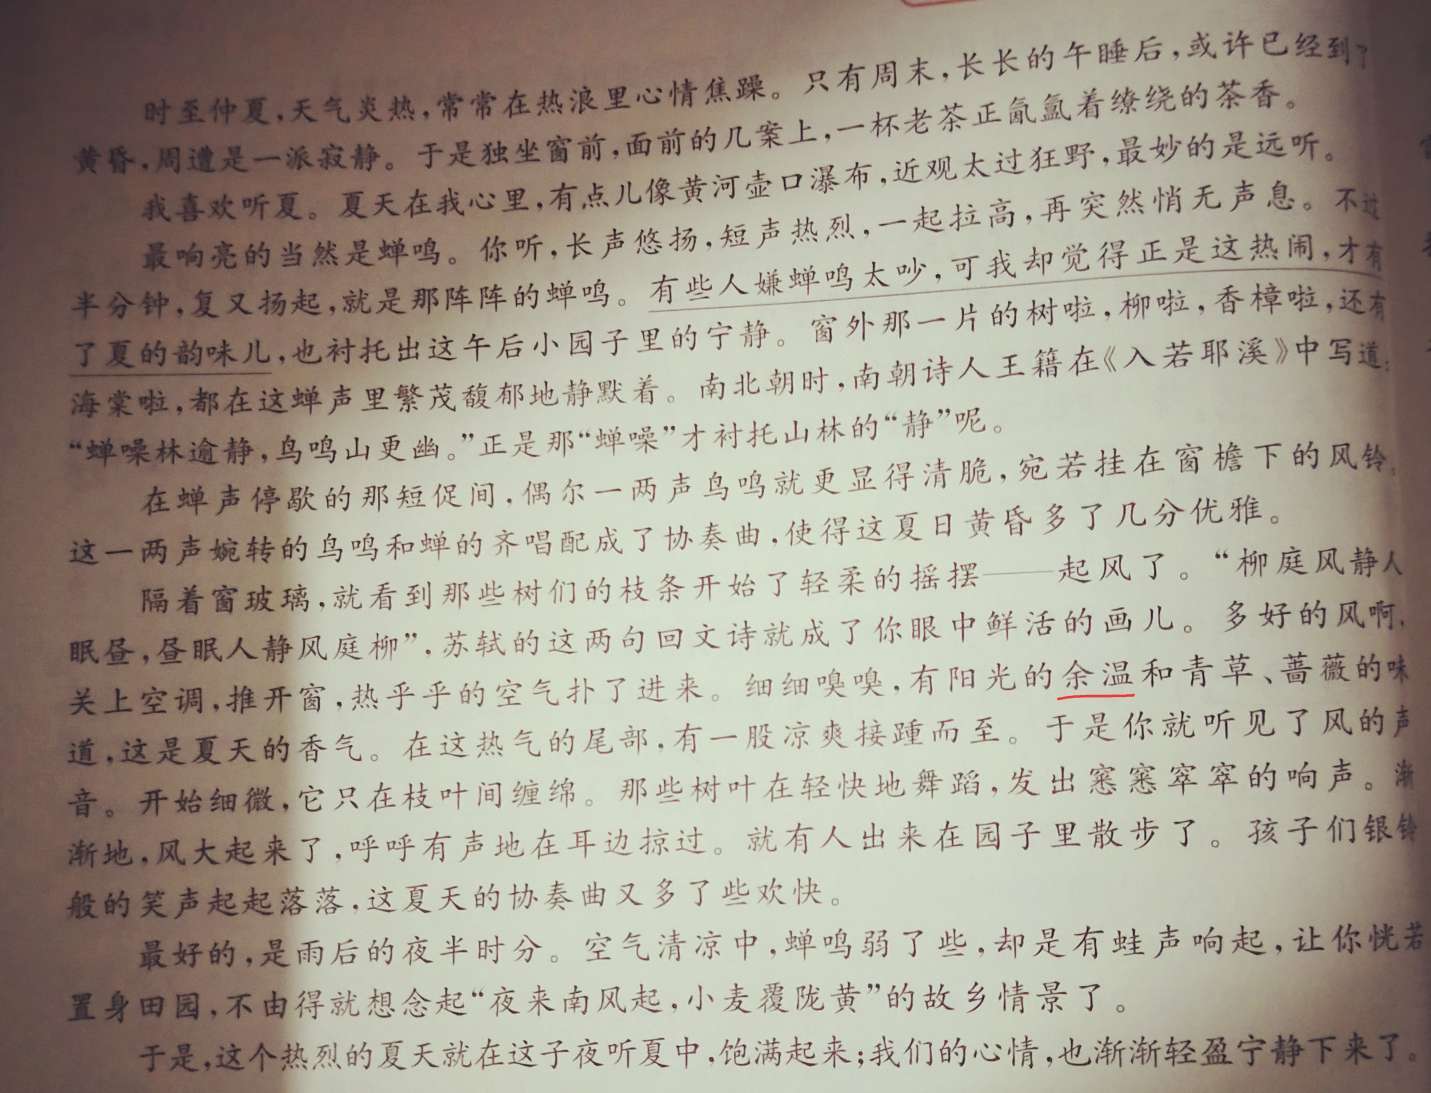 时至仲夏，天气炎热，常常在热浪里心情焦躁。只有周末，长长的午睡后，或许已经到了
黄昏，周遭是一派寂静。于是独坐窗前，面前的几案上，一杯老茶正氤氲着缭绕的茶香。
我喜欢听夏。夏天在我心里，有点儿像黄河壶口瀑布，近观太过狂野，最妙的是远听。
最响亮的当然是蝉鸣。你听，长声悠扬，短声热烈，一起拉高，再突然悄无声息。不过
半分钟，复又扬起，就是那阵阵的蝉鸣。有些人嫌蝉鸣太吵，可我却觉得正是这热闹，才有
了夏的韵味儿，也衬托出这午后小园子里的宁静。窗外那一片的树啦，柳啦，香樟啦，还有
海棠啦，都在这蝉声里繁茂馥郁地静默着。南北朝时，南朝诗人王籍在《入若耶溪》中写道：
“蝉噪林逾静，鸟鸣山更幽。”正是那“蝉噪”才衬托山林的“静”呢。
在蝉声停歇的那短促间，偶尔一两声鸟鸣就更显得清脆，宛若挂在窗檐下的风铃。
这一两声婉转的鸟鸣和蝉的齐唱配成了协奏曲，使得这夏日黄昏多了几分优雅。
隔着窗玻璃，就看到那些树们的枝条开始了轻柔的摇摆——起风了。“柳庭风静人
眠昼，昼眠人静风庭柳”，苏轼的这两句回文诗就成了你眼中鲜活的画儿。多好的风啊，
关上空调，推开窗，热乎乎的空气扑了进来。细细嗅嗅，有阳光的余温和青草、蔷薇的味
道，这是夏天的香气。在这热气的尾部，有一股凉爽接踵而至。于是你就听见了风的声
音。开始细微，它只在枝叶间缠绵。那些树叶在轻快地舞蹈，发出窸窸窣窣的响声。渐
渐地，风大起来了，呼呼有声地在耳边掠过。就有人出来在园子里散步了。孩子们银铃
般的笑声起起落落，这夏天的协奏曲又多了些欢快。
最好的，是雨后的夜半时分。空气清凉中，蝉鸣弱了些，却是有蛙声响起，让你恍若
置身田园，不由得就想念起“夜来南风起，小麦覆陇黄”的故乡情景了。
于是，这个热烈的夏天就在这子夜听夏中，饱满起来；我们的心情，也渐渐轻盈宁静下来了。